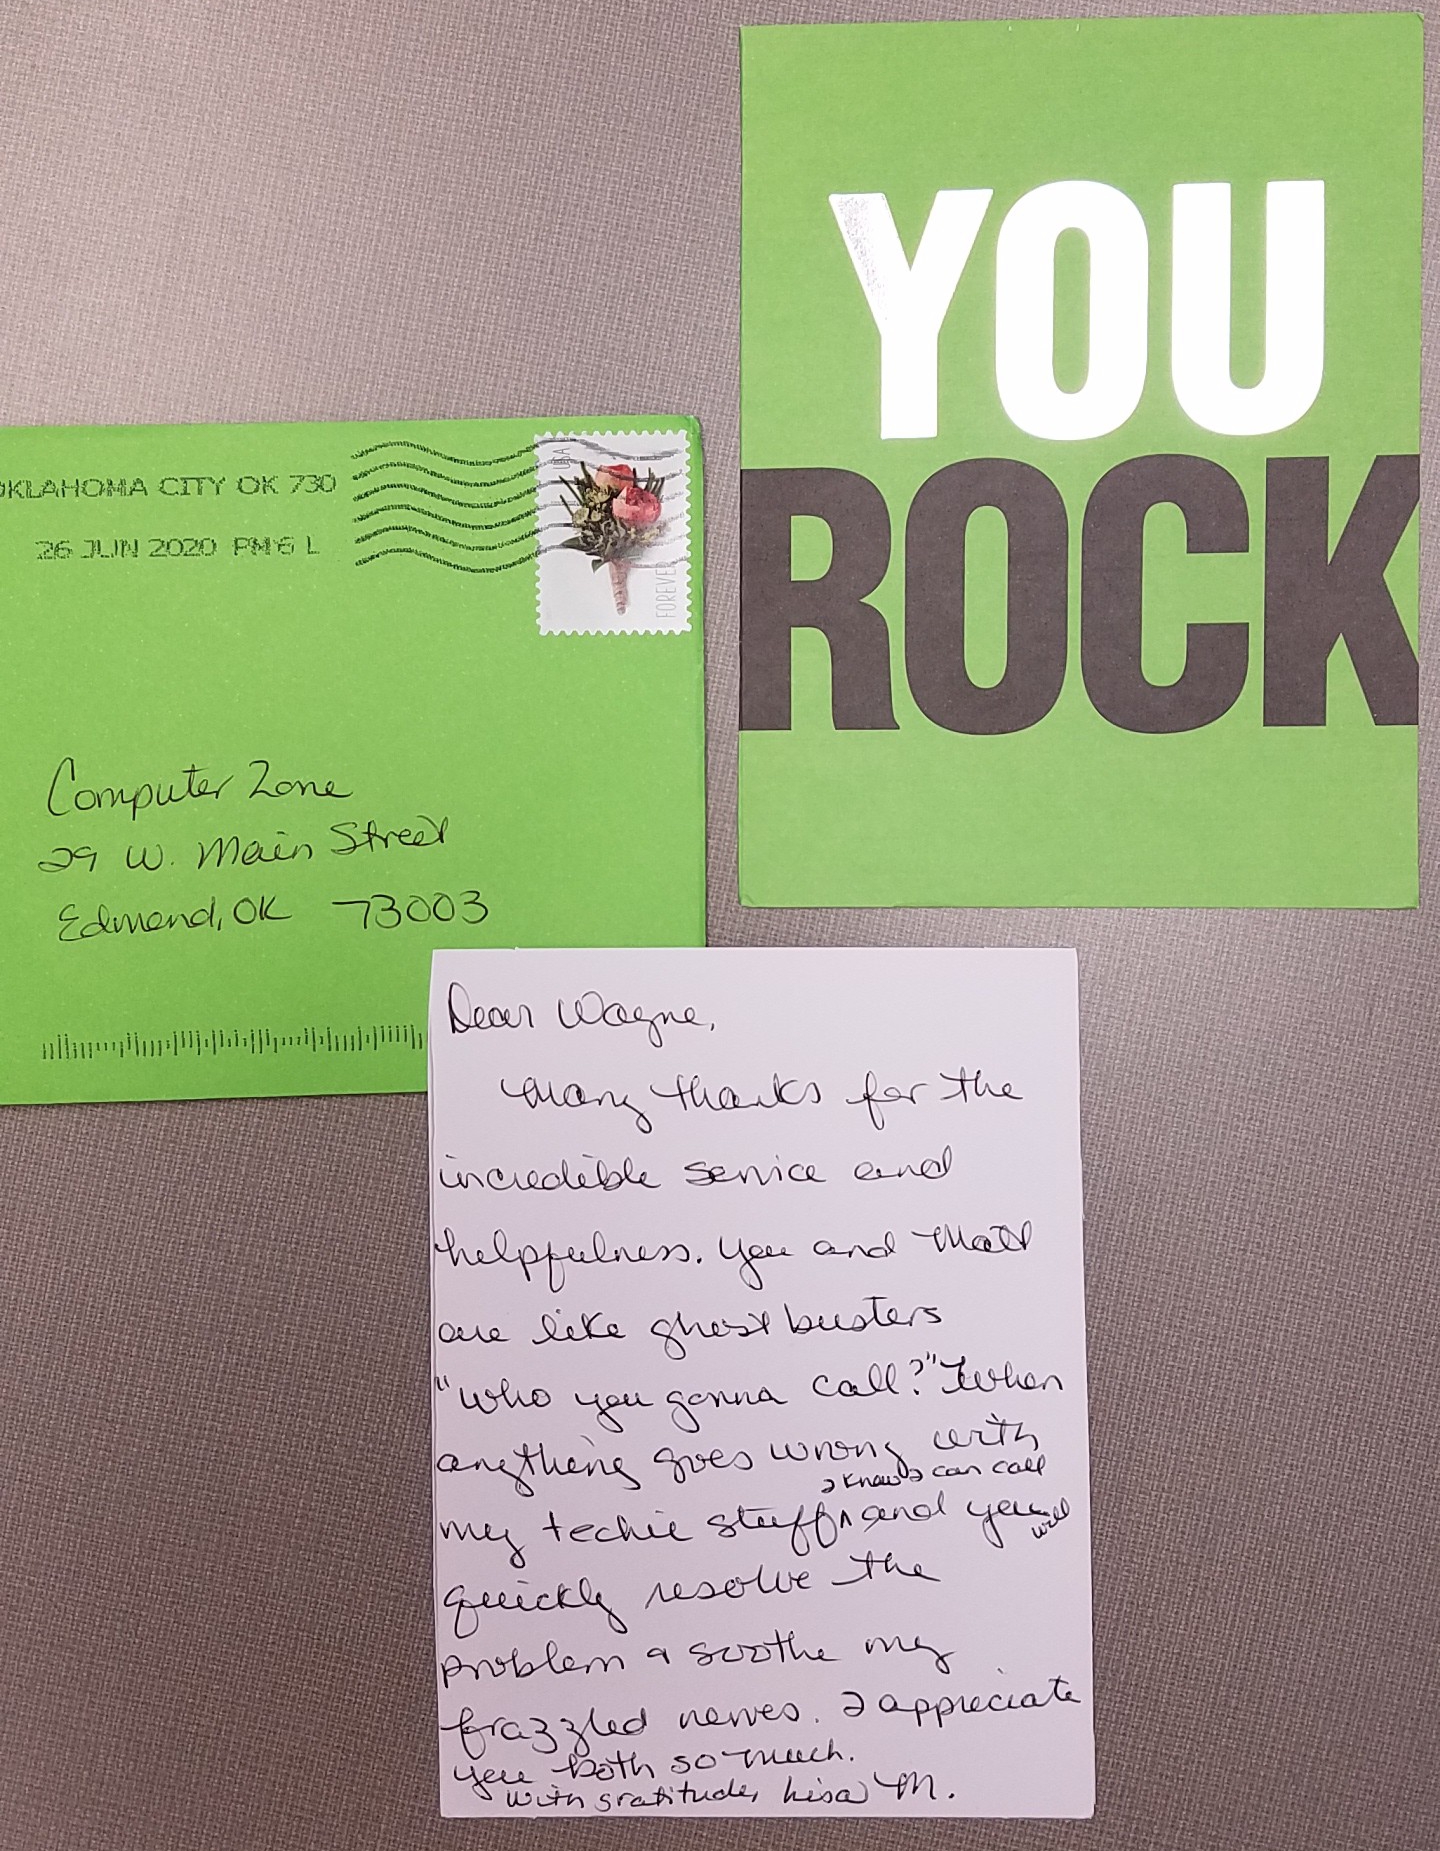 OKLAHOMA CITY OK 730
26 JUN 2020 PM 6 L
USA
FOREVER
Computer Zone
29 W. Main Street
Edmond, OK 73003
YOU
ROCK
Dear Wayne,
Many thanks for the
incredible service and
helpfulness. You and Matt
are like ghostbusters
"who you gonna call?" When
anything goes wrong with
I know I can call
my techie stuff ^ and you will
quickly resolve the
problem & soothe my
frazzled nerves. I appreciate
you both so much.
with gratitude, Lisa M.